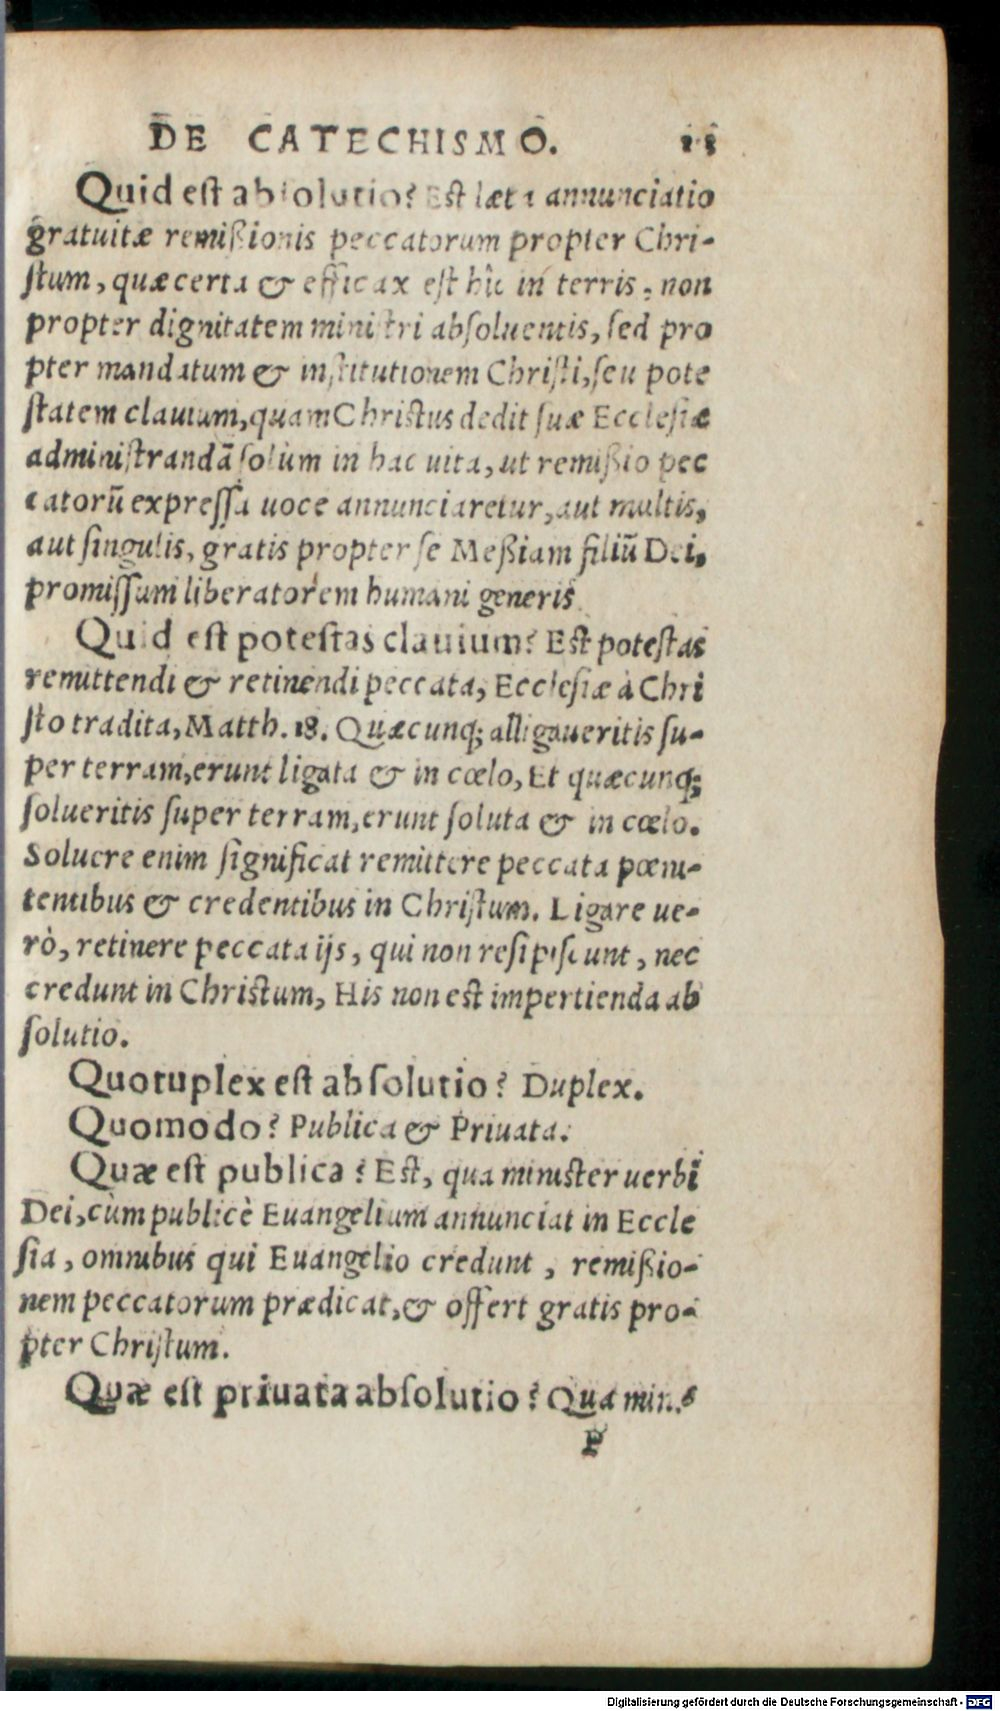 DE CATECHISMO.
Quid est absolutio? Est læta annunciatio
gratuitæ remißionis peccatorum propter Chri-
stum, quæ certa & efficax est hîc in terris, non
propter dignitatem ministri absoluentis, sed pro
pter mandatum & institutionem Christi, seu pote
statem clauium, quam Christus dedit suæ Ecclesiæ
administrandā solùm in hac uita, ut remißio pec
catorū expressa uoce annunciaretur, aut multis,
aut singulis, gratis propter se Meßiam filiū Dei,
promissum liberatorem humani generis.
Quid est potestas clauium? Est potestas
remittendi & retinendi peccata, Ecclesiæ à Chri
sto tradita, Matth. 18. Quæcunq; alligaueritis su-
per terram, erunt ligata & in cœlo, Et quæcunq;
solueritis super terram, erunt soluta & in cœlo.
Soluere enim significat remittere peccata pœni-
tentibus & credentibus in Christum. Ligare ue-
rò, retinere peccata ijs, qui non resipiscunt, nec
credunt in Christum, His non est impertienda ab
solutio.
Quotuplex est absolutio? Duplex.
Quomodo? Publica & Priuata.
Quæ est publica? Est, qua minister uerbi
Dei, cùm publicè Euangelium annunciat in Eccle
sia, omnibus qui Euangelio credunt, remißio-
nem peccatorum prædicat, & offert gratis pro-
pter Christum.
Quæ est priuata absolutio? Qua
Digitalisierung gefördert durch die Deutsche Forschungsgemeinschaft - DFG